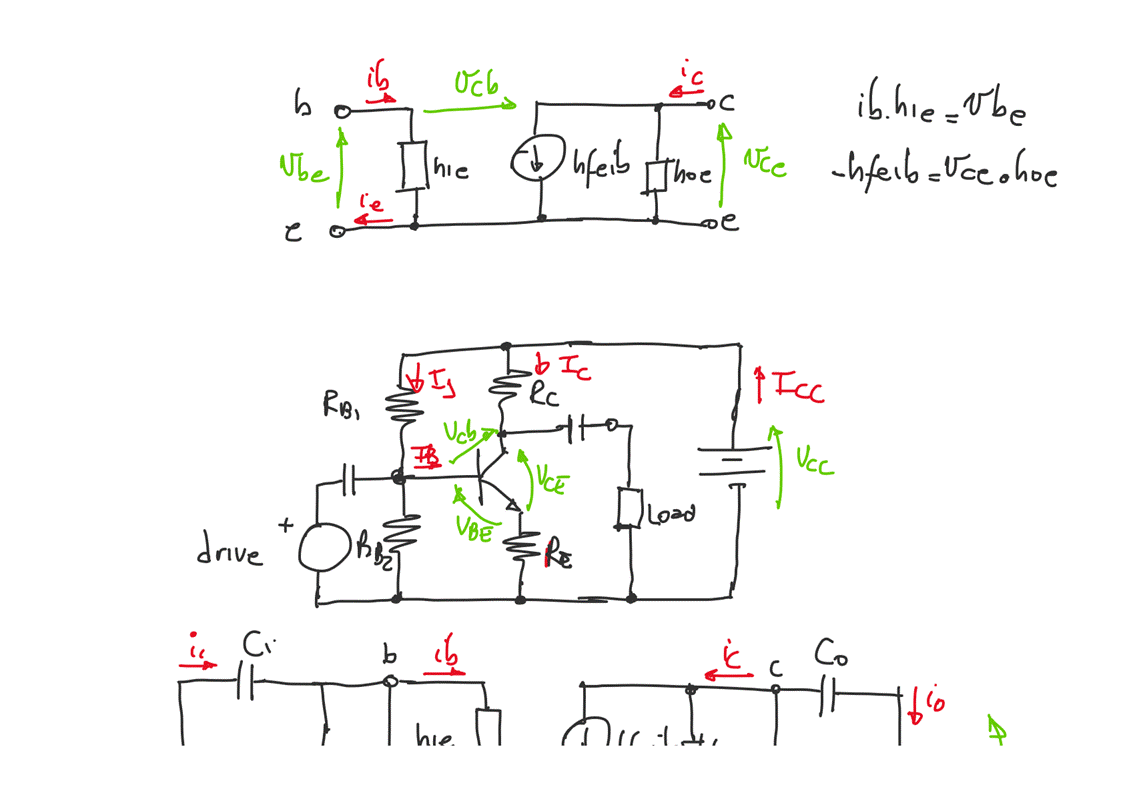 ib
vcb
ic
b
c
ib.hie = vbe
vbe
hie
hfeib
hoe
vce
-hfeib = vce.hoe
ie
e
e
I1
Ic
RB1
RC
ICC
Vcb
IB
VCE
VCC
+
VBE
Load
drive
RB2
RE
ii
Ci
b
ib
ic
c
Co
io
hie